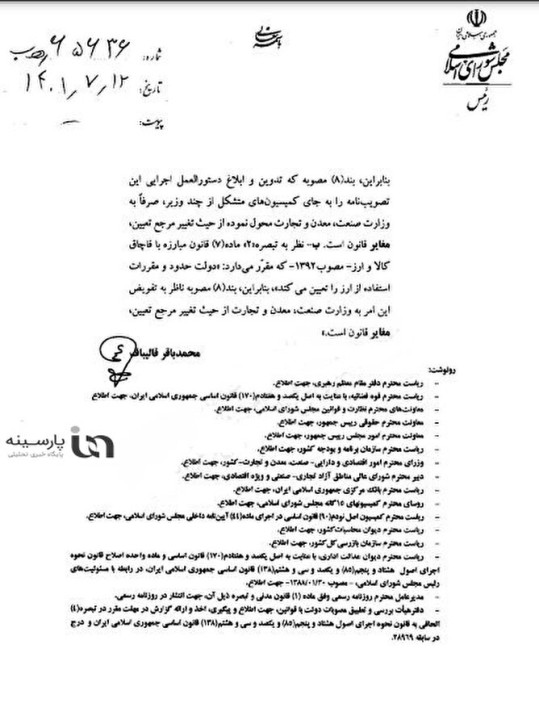 جمهوری اسلامی ایران
مجلس شورای اسلامی
رئیس
شماره: ۶۵۶۳۶
تاریخ: ۱۴۰۱/۷/۱۲
پیوست: —
بنابراین، بند(۸) مصوبه که تدوین و ابلاغ دستورالعمل اجرایی این
تصویب‌نامه را به جای کمیسیون‌های متشکل از چند وزیر، صرفاً به
وزارت صنعت، معدن و تجارت محول نموده از حیث تغییر مرجع تعیین،
مغایر قانون است. ب- نظر به تبصره«۲» ماده(۷) قانون مبارزه با قاچاق
کالا و ارز- مصوب ۱۳۹۲- که مقرّر می‌دارد: «دولت حدود و مقررات
استفاده از ارز را تعیین می کند»، بنابراین، بند(۸) مصوبه ناظر به تفویض
این امر به وزارت صنعت، معدن و تجارت از حیث تغییر مرجع تعیین،
مغایر قانون است.»
محمدباقر قالیباف
رونوشت:
- ریاست محترم دفتر مقام معظم رهبری، جهت اطلاع.
- ریاست محترم قوه قضائیه، با عنایت به اصل یکصد و هفتادم(۱۷۰) قانون اساسی جمهوری اسلامی ایران، جهت اطلاع.
- معاونت‌های محترم نظارت و قوانین مجلس شورای اسلامی، جهت اطلاع.
- معاونت محترم حقوقی رییس جمهور، جهت اطلاع.
- معاونت محترم امور مجلس رییس جمهور، جهت اطلاع.
- ریاست محترم سازمان برنامه و بودجه کشور، جهت اطلاع.
- وزرای محترم امور اقتصادی و دارایی- صنعت، معدن و تجارت- کشور، جهت اطلاع.
- دبیر محترم شورای عالی مناطق آزاد تجاری- صنعتی و ویژه اقتصادی، جهت اطلاع.
- ریاست محترم بانک مرکزی جمهوری اسلامی ایران، جهت اطلاع.
- روسای محترم کمیسیونهای ۱۵گانه مجلس شورای اسلامی، جهت اطلاع.
- ریاست محترم کمیسیون اصل نودم(۹۰) قانون اساسی در اجرای ماده(۴۴) آیین‌نامه داخلی مجلس شورای اسلامی، جهت اطلاع.
- ریاست محترم دیوان محاسبات کشور، جهت اطلاع.
- ریاست محترم سازمان بازرسی کل کشور، جهت اطلاع.
- ریاست محترم دیوان عدالت اداری، با عنایت به اصل یکصد و هفتادم(۱۷۰) قانون اساسی و ماده واحده اصلاح قانون نحوه
اجرای اصول هشتاد و پنجم(۸۵) و یکصد و سی و هشتم(۱۳۸) قانون اساسی جمهوری اسلامی ایران، در رابطه با مسئولیت‌های
رئیس مجلس شورای اسلامی، - مصوب ۱۳۸۸/۰۱/۳۰- جهت اطلاع.
- مدیرعامل محترم روزنامه رسمی وفق ماده (۱) قانون مدنی و تبصره ذیل آن، جهت انتشار در روزنامه رسمی.
- دفتر هیأت بررسی و تطبیق مصوبات دولت با قوانین، جهت اطلاع و پیگیری، اخذ و ارائه گزارش در مهلت مقرر در تبصره(۴)
الحاقی به قانون نحوه اجرای اصول هشتاد و پنجم(۸۵) و یکصد و سی و هشتم(۱۳۸) قانون اساسی جمهوری اسلامی ایران و درج
در سابقه ۲۸۹۶۹.
پارسینه
پایگاه خبری تحلیلی